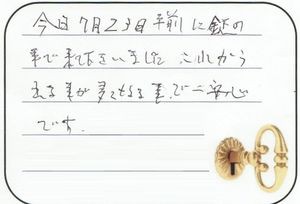 今日7月23日午前に
車で来て下さいました これから
乗る事が多くなる車で一安心
です.